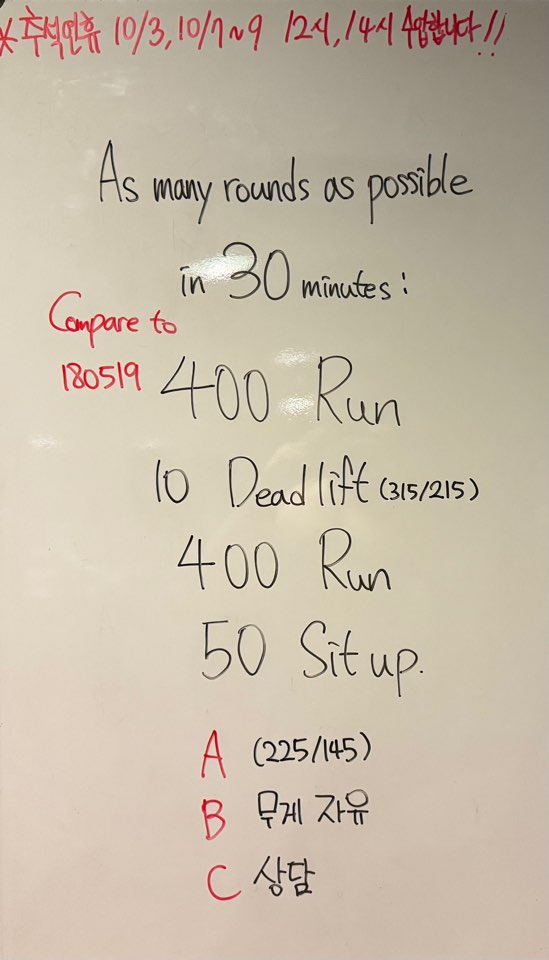 * 추석연휴 10/3, 10/7~9 12시, 14시 수업합니다!!
As many rounds as possible
in 30 minutes:
Compare to
180519
400 Run
10 Deadlift (315/215)
400 Run
50 Sit up.
A (225/145)
B 무게 자유
C 상담